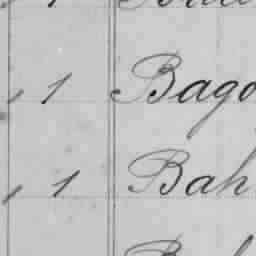 , 1 Bago
, 1 Bah